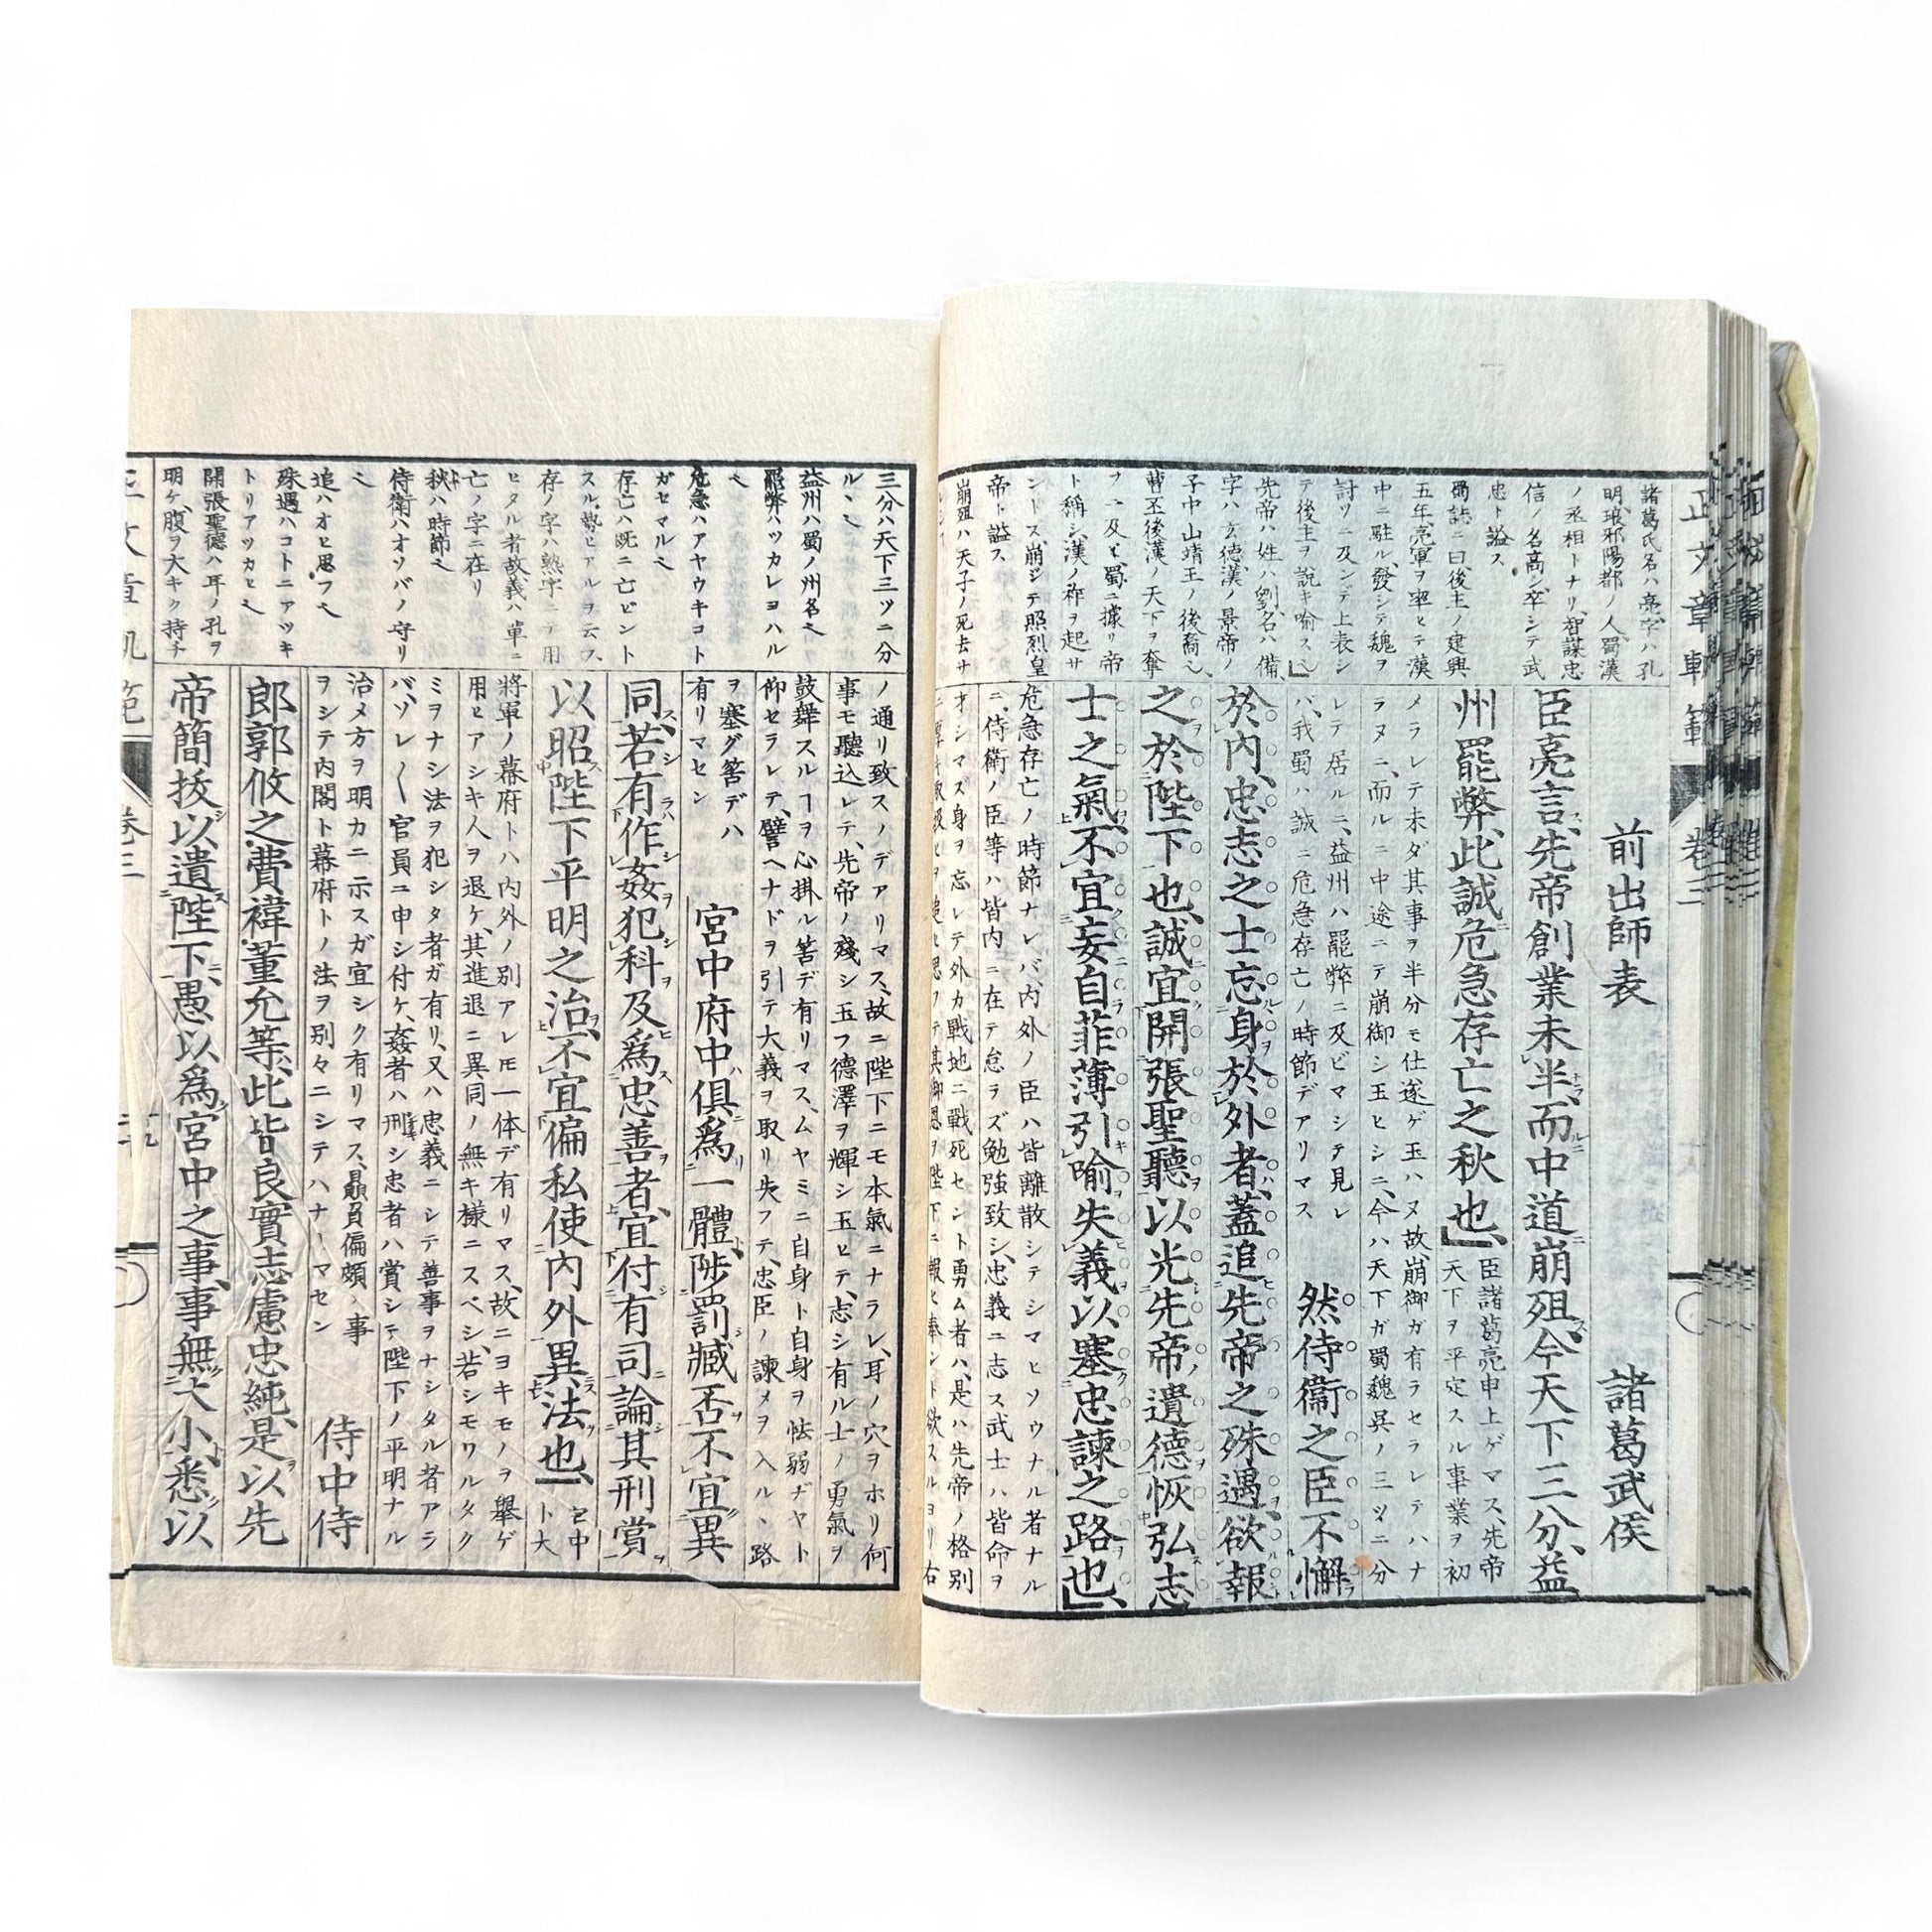 正文章軌範 卷三
諸葛氏名ハ亮、字ハ孔
明、琅邪陽都ノ人、蜀漢
ノ丞相トナリ、智謀忠
信ノ名高シ、卒シテ武
忠ト謚ス
蜀誌ニ曰、後主ノ建興
五年、亮軍ヲ率ヒテ漢
中ニ駐ル、發シテ魏ヲ
討ツニ及ンデ上表シ
テ後主ヲ説キ喩ス
先帝ハ姓ハ劉、名ハ備、
字ハ玄德、漢ノ景帝ノ
子中山靖王ノ後裔
曹丕後漢ノ天下ヲ奪
フニ及ビ、蜀ニ據リ帝
ト稱シ、漢ノ祚ヲ起サ
ントス、崩ジテ照烈皇
帝ト謚ス
崩殂ハ天子ノ死去サ
前出師表 諸葛武侯
臣亮言、先帝創業未半而中道崩殂、今天下三分、益
州罷弊、此誠危急存亡之秋也、
臣諸葛亮申上ゲマス、先帝
天下ヲ平定スル事業ヲ初
メラレテ未ダ其事ヲ半分モ仕遂ゲ玉ハヌ故崩御ガ有ラセラレテハナ
ラヌニ、而ルニ中途ニテ崩御シ玉ヒシニ、今ハ天下ガ蜀魏吳ノ三ツニ分
レテ居ルニ、益州ハ罷弊ニ及ビマシテ見レ
バ、我蜀ハ誠ニ危急存亡ノ時節デアリマス
然侍衞之臣不懈
於内、忠志之士忘身於外者、蓋追先帝之殊遇、欲報
之於陛下也、誠宜開張聖聽以光先帝遺德、恢弘志
士之氣、不宜妄自菲薄引喩失義以塞忠諫之路也、
危急存亡ノ時節ナレバ、内外ノ臣ハ皆離散シテシマヒソウナル者ナル
ニ、侍衞ノ臣等ハ皆内ニ在テ怠ラズ勉強致シ、忠義ニ志ス武士ハ皆命ヲ
オシマズ身ヲ忘レテ外カ戰地ニ戰死セント勇ム者ハ、是ハ先帝ノ格別
三分ハ天下三ツニ分
益州ハ蜀ノ州名
罷弊ハツカレヨハル
危急ハアヤウキコト
ガセマル
存亡ハ既ニ亡ビント
スル勢ヒアルヲ云フ、
存ノ字ハ熟字ニテ用
ヒタル者故義ハ單ニ
亡ノ字ニ在リ
秋ハ時節
侍衛ハオソバノ守リ
追ハオヒ思フ
殊遇ハコトニアツキ
トリアツカヒ
開張聖德ハ耳ノ孔ヲ
明ケ、腹ヲ大キク持チ
ノ通リ致スノデアリマス、故ニ陛下ニモ本氣ニナラレ、耳ノ穴ヲホリ何
事モ聽込レテ、先帝ノ殘シ玉フ德澤ヲ輝シ玉ヒテ、志シ有ル士ノ勇氣ヲ
鼓舞スルヿヲ心掛ル筈デ有リマス、ムヤミニ自身ト自身ヲ怯弱ヂヤト
仰セラレテ、譬ヘナドヲ引テ大義ヲ取リ失フテ、忠臣ノ諫メヲ入ルヽ路
ヲ塞グ筈デハ
有リマセン
宮中府中俱爲一體、陟罰臧否不宜異
同、若有作姦犯科及爲忠善者、宜付有司論其刑賞
以昭陛下平明之治、不宜偏私使内外異法也、
將軍ノ幕府トハ内外ノ別アレ𪜈一体デ有リマス、故ニヨキモノヲ舉ゲ
用ヒアシキ人ヲ退ケ、其進退ニ異同ノ無キ樣ニスベシ、若シモワルタク
ミヲナシ法ヲ犯シタ者ガ有リ、又ハ忠義ニシテ善事ヲナシタル者アラ
バ、ソレ〱官員ニ申シ付ケ、姦者ハ刑シ忠者ハ賞シテ陛下ノ平明ナル
治メ方ヲ明カニ示スガ宜シク有リマス、贔負偏頗ノ事
ヲシテ内閣ト幕府トノ法ヲ別々ニシテハナリマセン
侍中侍
郎郭攸之費禕董允等、此皆良實志慮忠純、是以先
帝簡拔以遺陛下、愚以爲宮中之事、事無大小、悉以